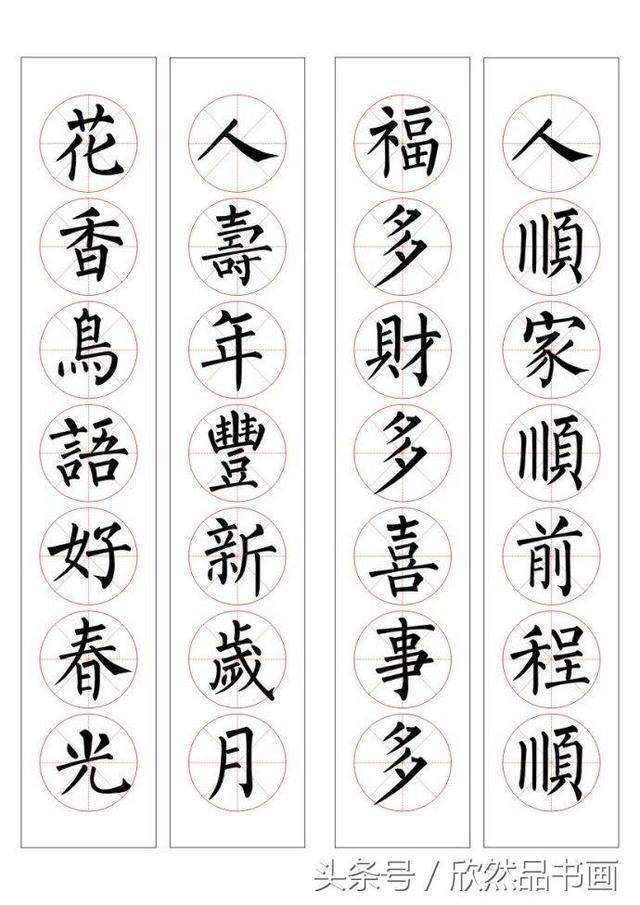 人順家順前程順
福多財多喜事多
人壽年豐新歲月
花香鳥語好春光
头条号 / 欣然品书画